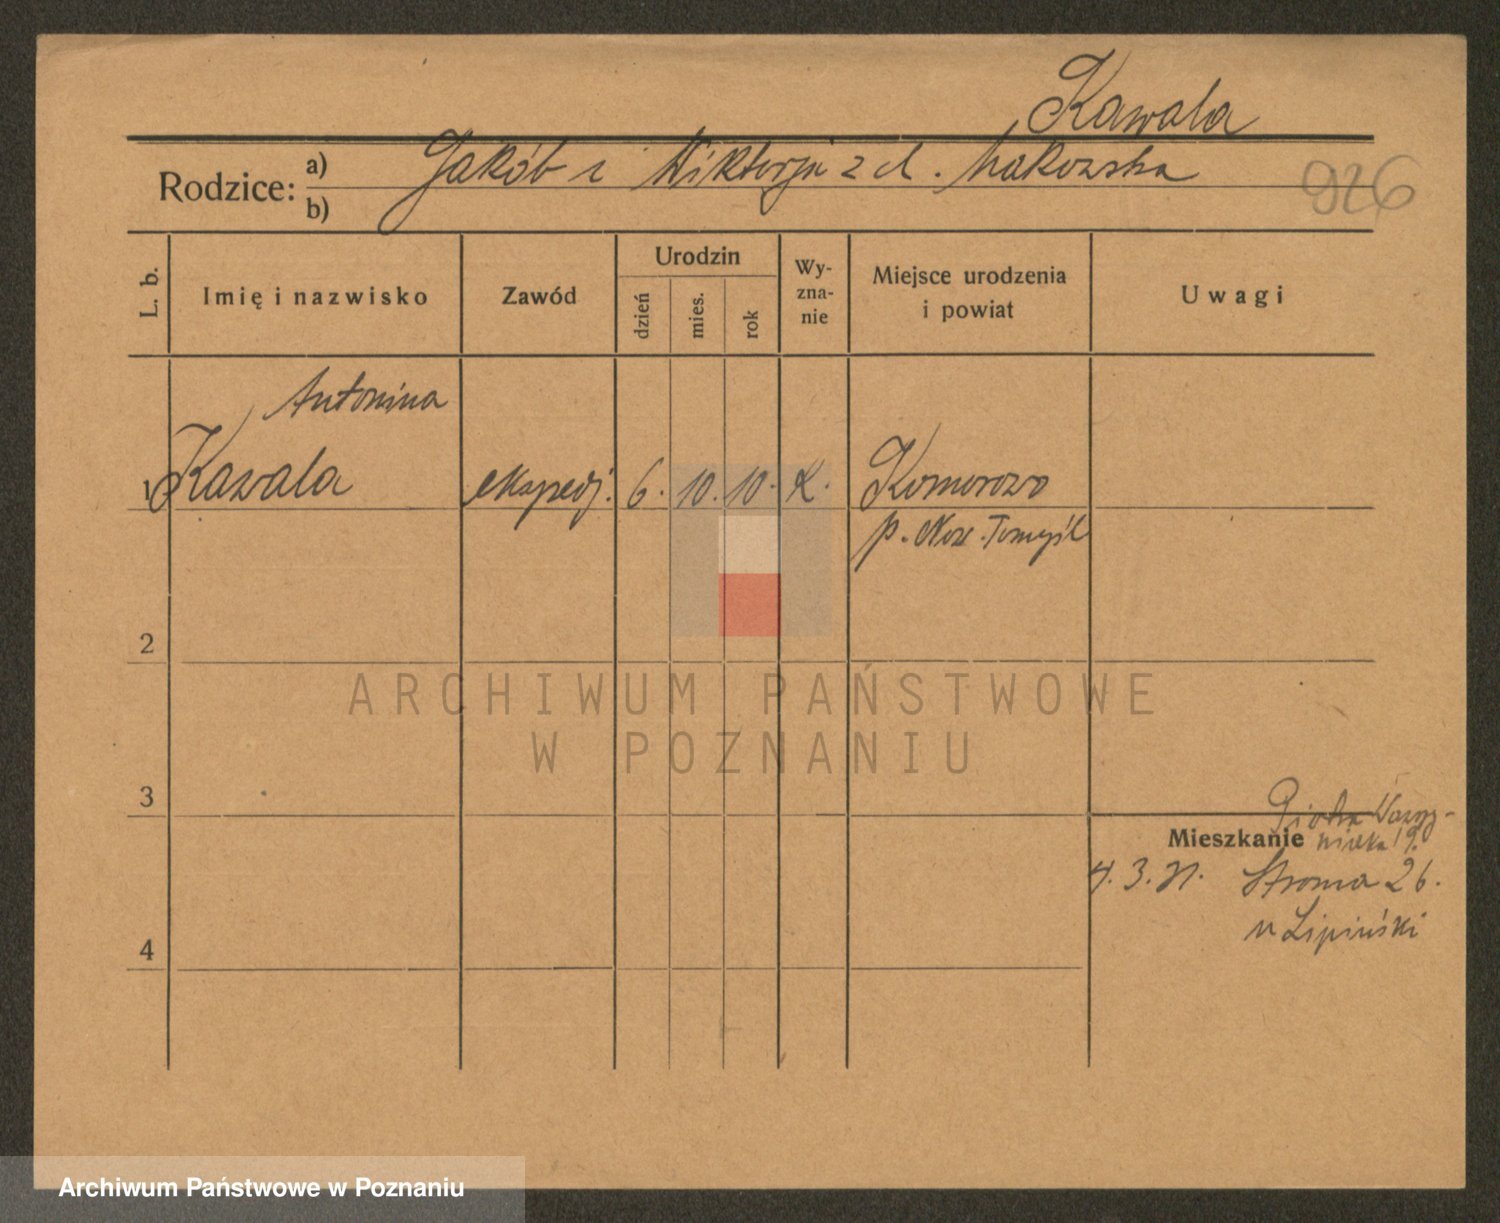 Kawala
Rodzice: a) b) Jakób i Wiktorja z d. Makowska
926
L. b. Imię i nazwisko Zawód Urodzin dzień mies. rok Wy-zna-nie Miejsce urodzenia i powiat Uwagi
Antonina
1 Kawala ekspedj. 6. 10. 10. k. Komorowo
p. Now. Tomyśl
2
ARCHIWUM PAŃSTWOWE
W POZNANIU
3
Piotra Wawrzy-
Mieszkanie niaka 19.
4. 3. 31. Stroma 26.
u Lipiński
4
Archiwum Państwowe w Poznaniu